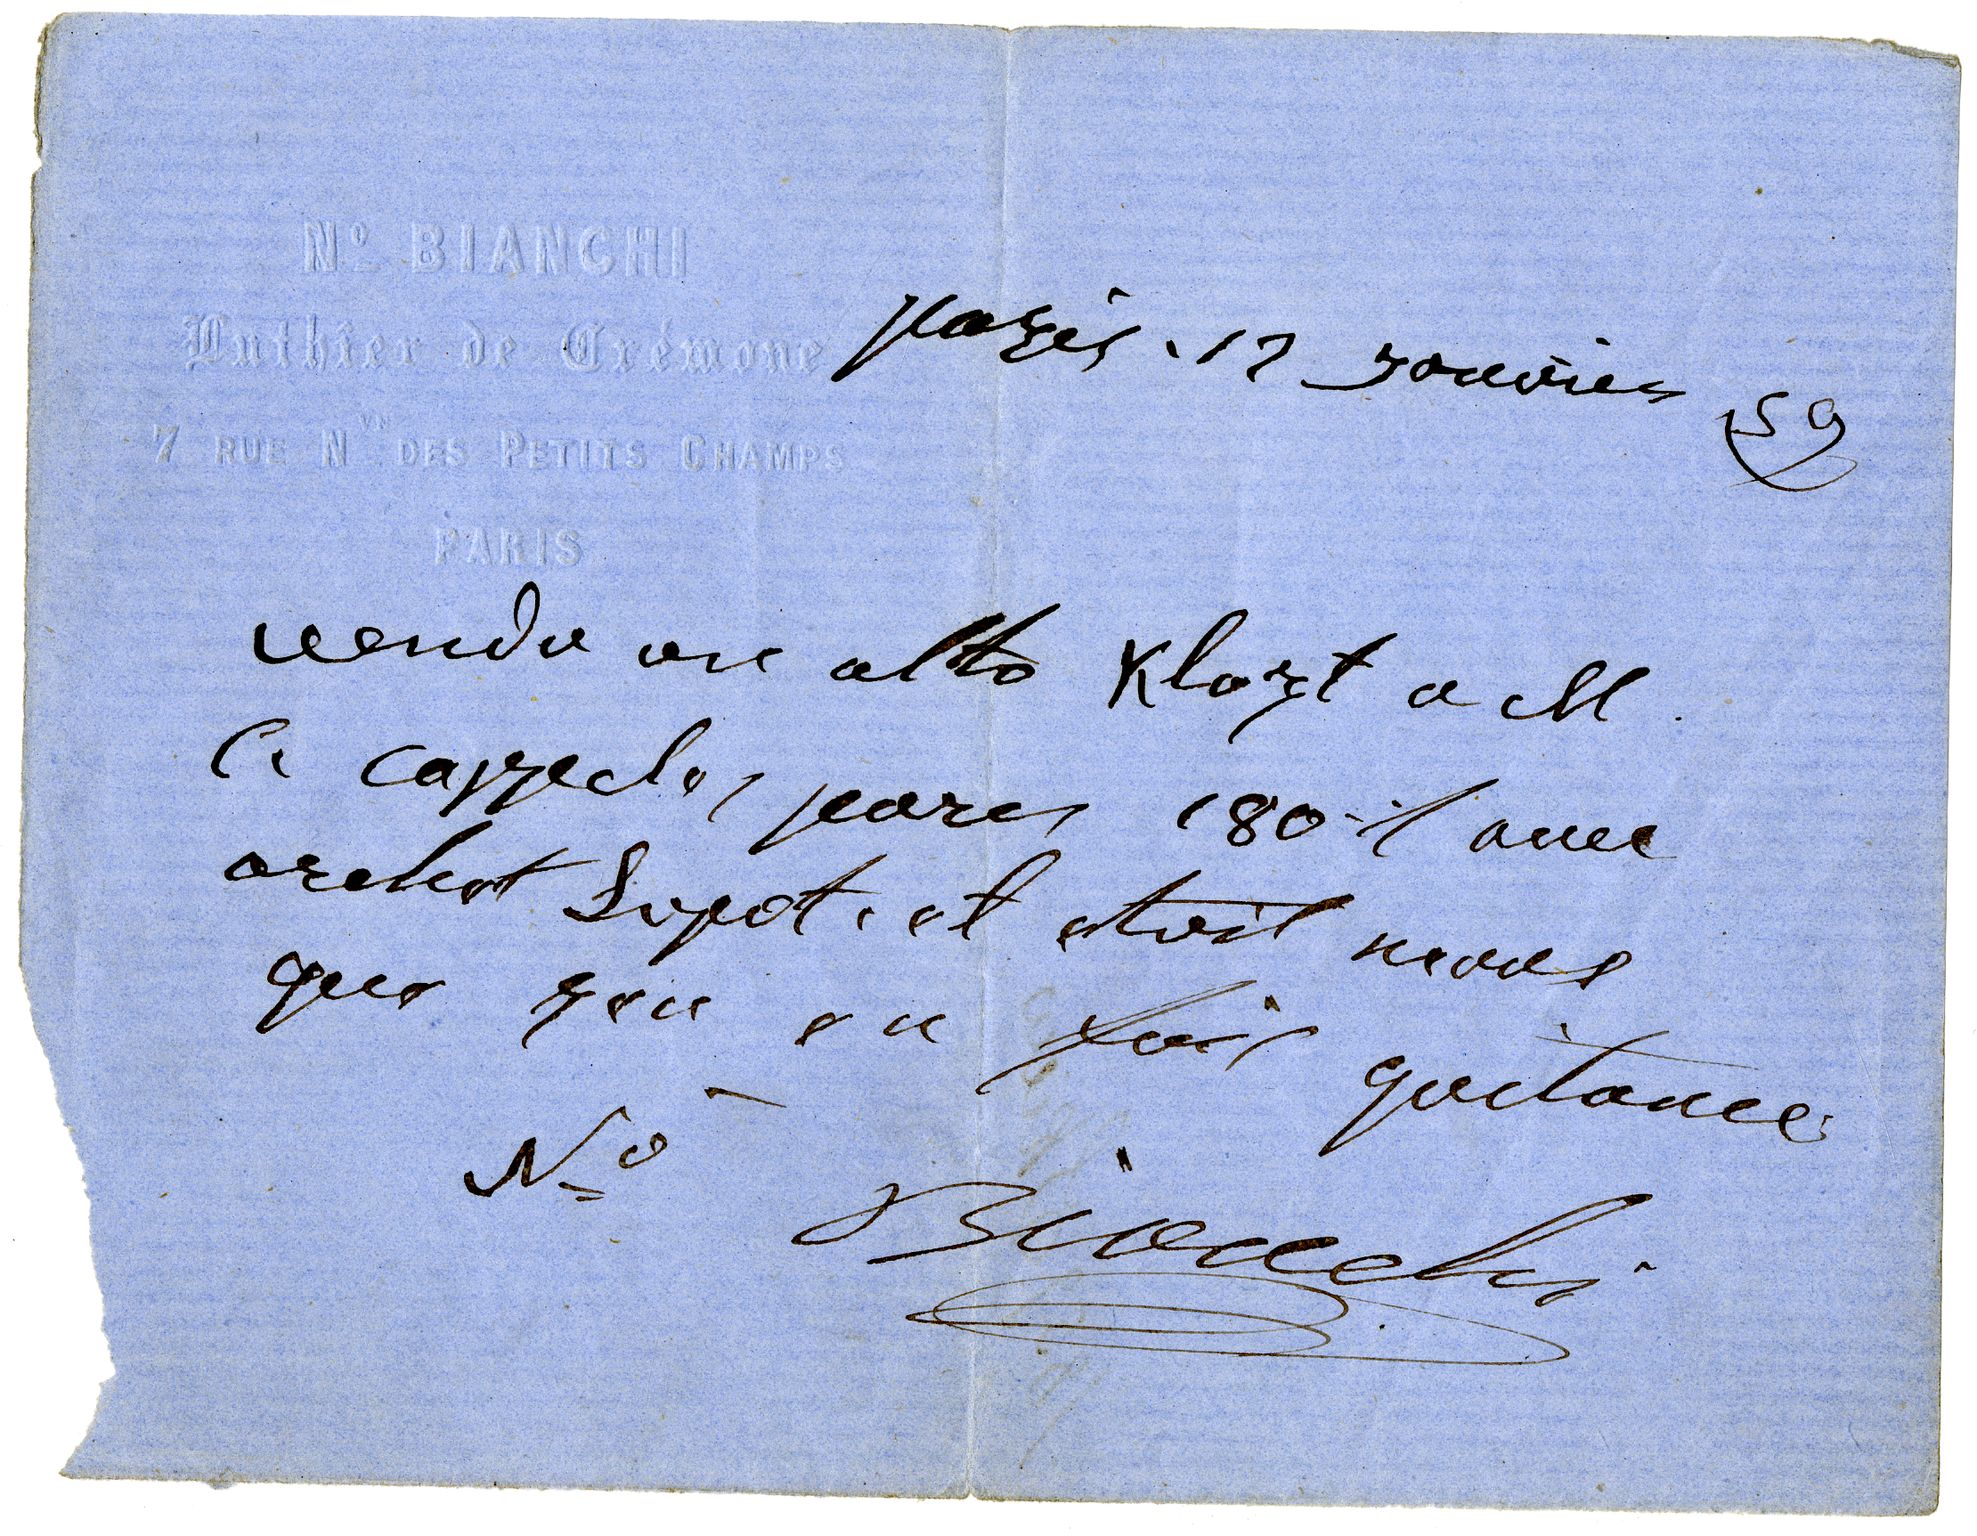 Nº BIANCHI
Luthier de Crémone
7 RUE Nᵛᵉ DES PETITS CHAMPS
PARIS
paris . 17 janvier 59
vendu un alto Klozt a M.
pour 180 f avec
archet Lupot. et etuit
que jen en fait quitance
Nº Bianchi